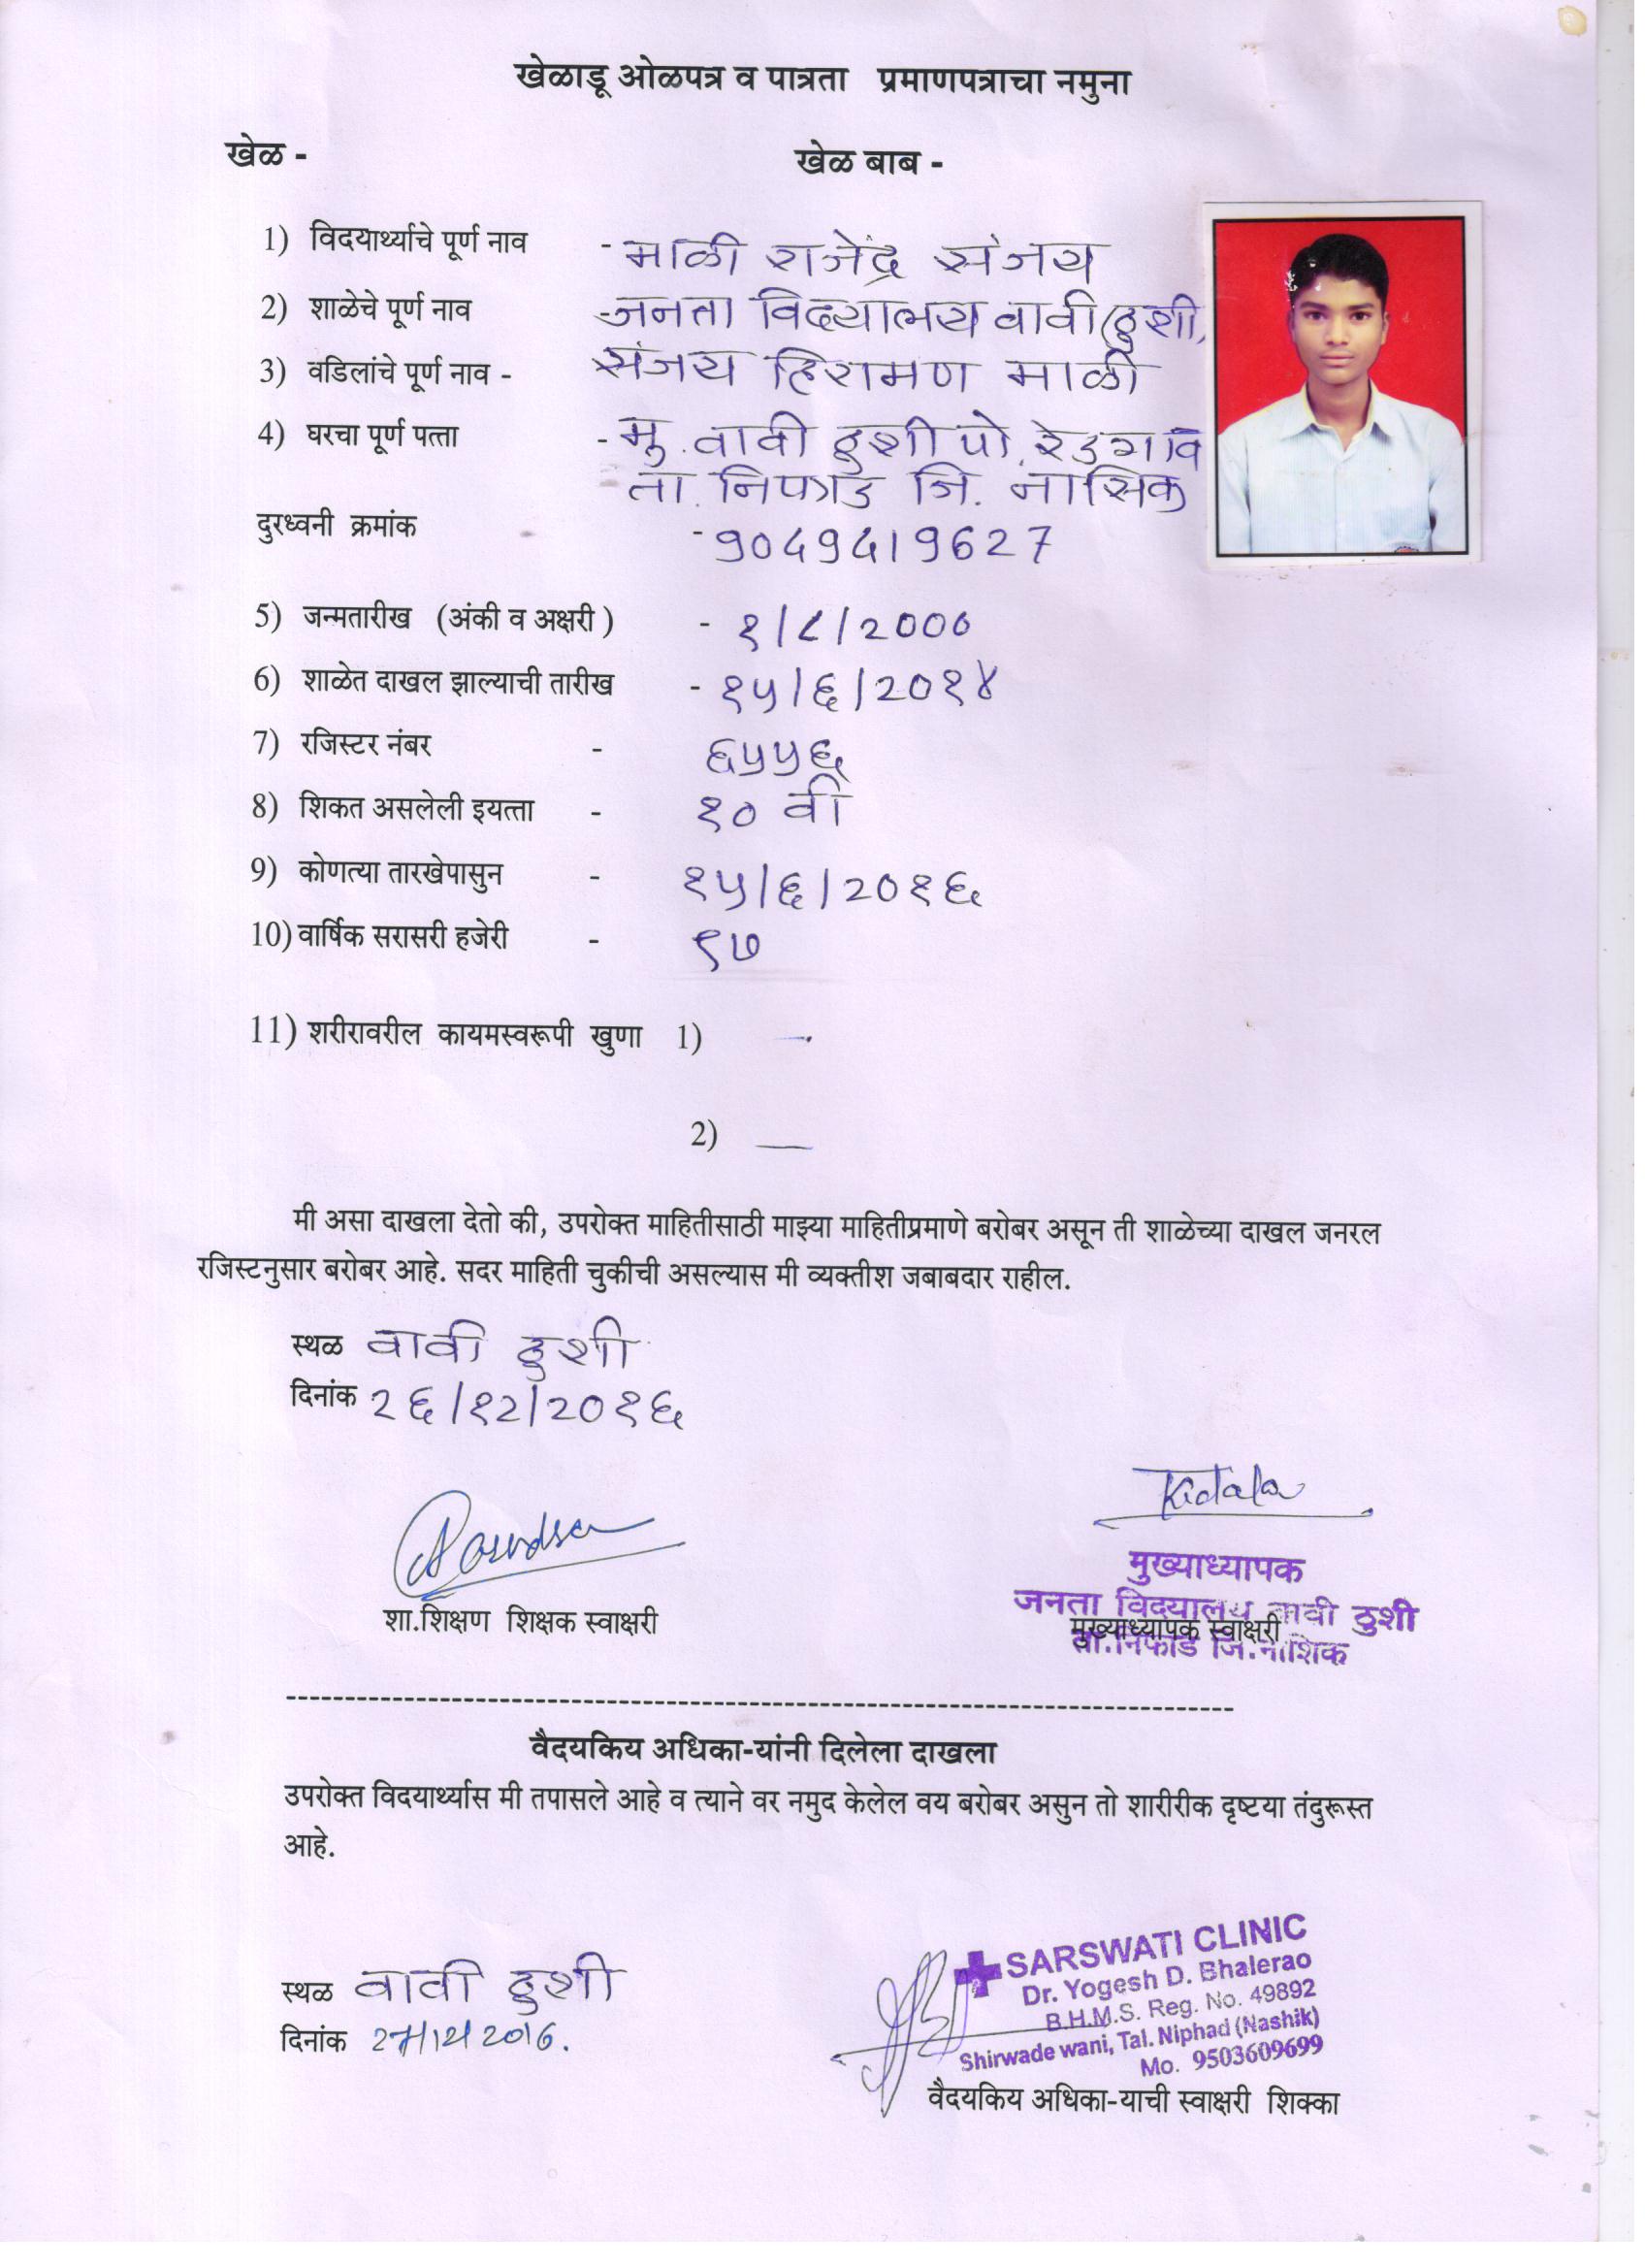 खेळाडू ओळपत्र व पात्रता प्रमाणपत्राचा नमुना
खेळ - खेळ बाब -
1) विदयार्थ्याचे पूर्ण नाव - माळी राजेंद्र संजय
2) शाळेचे पूर्ण नाव - जनता विद्यालय वावी ठुशी,
3) वडिलांचे पूर्ण नाव - संजय हिरामण माळी
4) घरचा पूर्ण पत्ता - मु. वावी ठुशी पो. रेडगाव
ता. निफाड जि. नासिक
दुरध्वनी क्रमांक - 9049419627
5) जन्मतारीख (अंकी व अक्षरी ) - १/८/2000
6) शाळेत दाखल झाल्याची तारीख - १५/६/2०१४
7) रजिस्टर नंबर - ६५५६
8) शिकत असलेली इयत्ता - १० वी
9) कोणत्या तारखेपासुन - १५/६/2०१६
10) वार्षिक सरासरी हजेरी - ९७
11) शरीरावरील कायमस्वरूपी खुणा 1) —
2) —
मी असा दाखला देतो की, उपरोक्त माहितीसाठी माझ्या माहितीप्रमाणे बरोबर असून ती शाळेच्या दाखल जनरल
रजिस्टनुसार बरोबर आहे. सदर माहिती चुकीची असल्यास मी व्यक्तीश जबाबदार राहील.
स्थळ वावी ठुशी
दिनांक २६/१२/२०१६
मुख्याध्यापक
जनता विदयालय वावी ठुशी
शा.शिक्षण शिक्षक स्वाक्षरी मुख्याध्यापक स्वाक्षरी
ता.निफाड जि.नाशिक
वैदयकिय अधिका-यांनी दिलेला दाखला
उपरोक्त विदयार्थ्यास मी तपासले आहे व त्याने वर नमुद केलेल वय बरोबर असुन तो शारीरीक दृष्टया तंदुरूस्त
आहे.
SARSWATI CLINIC
Dr. Yogesh D. Bhalerao
B.H.M.S. Reg. No. 49892
Shirwade wani, Tal. Niphad (Nashik)
Mo. 9503609699
स्थळ वावी ठुशी
दिनांक 27/12/2016.
वैदयकिय अधिका-याची स्वाक्षरी शिक्का